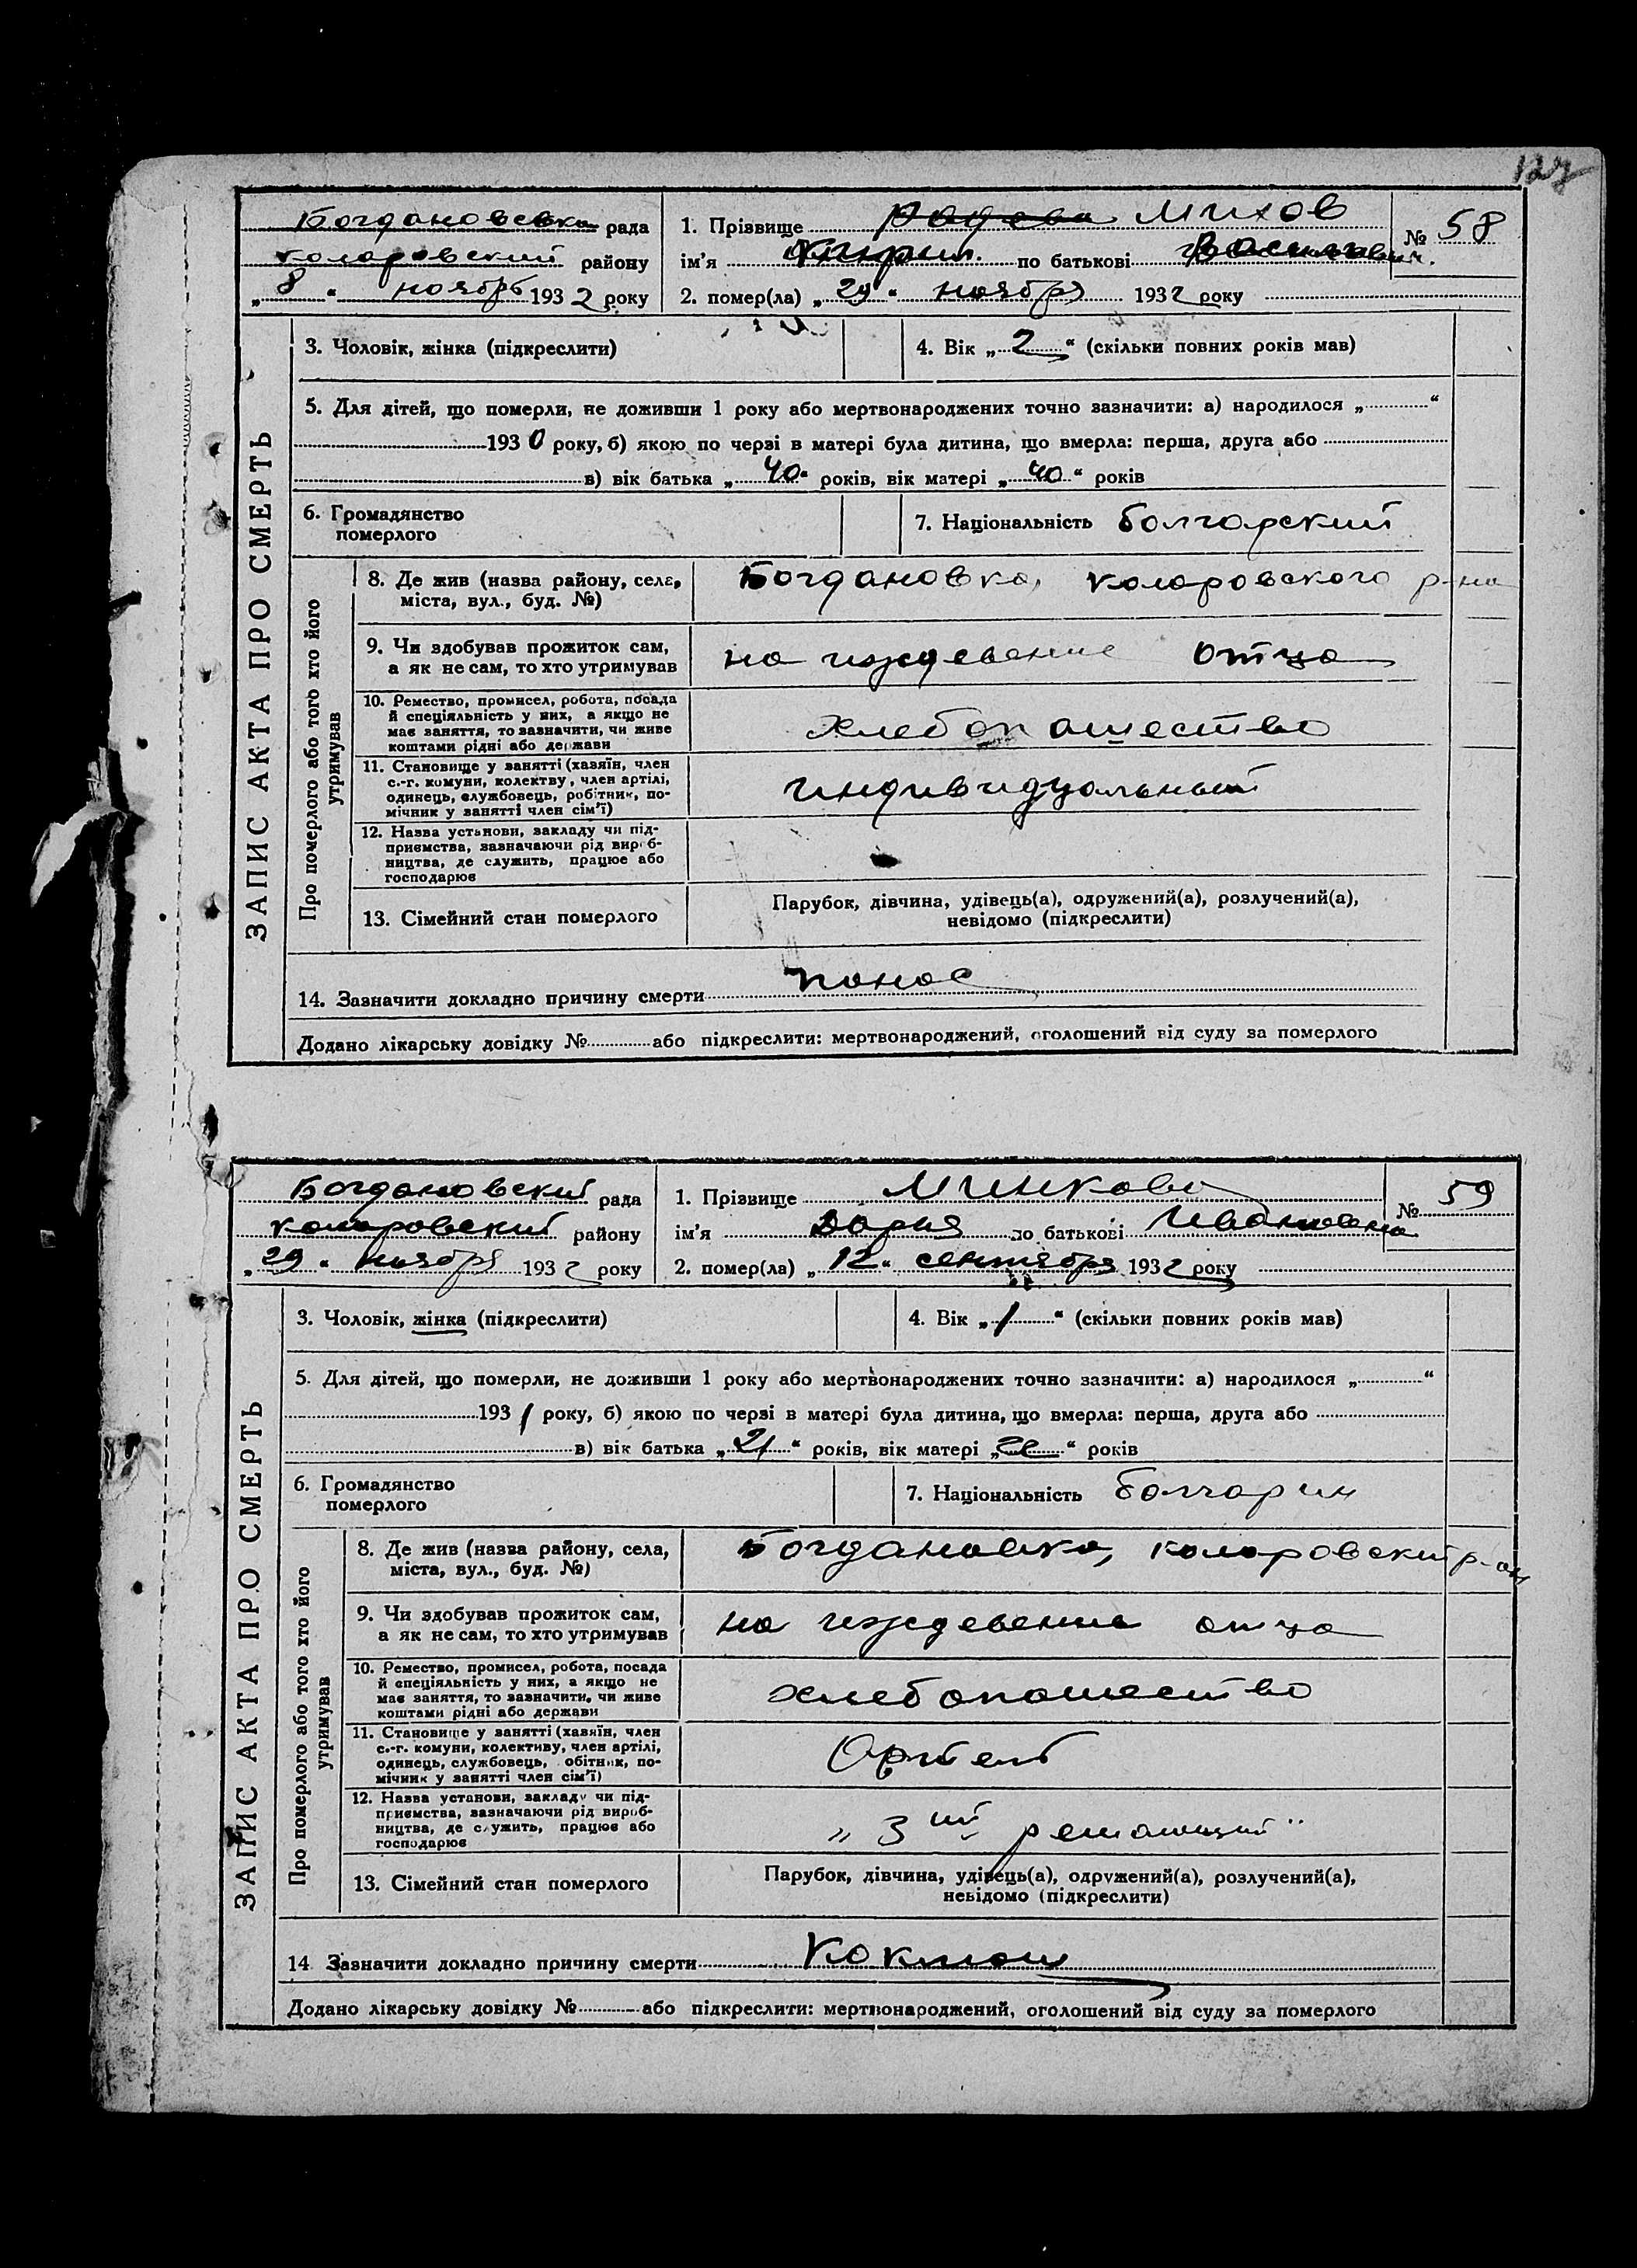 127
Богдановська рада
коларовский району
„8“ ноябрь 1932 року
1. Прізвище Радева Михов
ім'я Кирил по батькові Василевич.
№ 58
2. помер(ла) „29“ ноября 1932 року
ЗАПИС АКТА ПРО СМЕРТЬ
3. Чоловік, жінка (підкреслити)
4. Вік „2“ (скільки повних років мав)
5. Для дітей, що померли, не доживши 1 року або мертвонароджених точно зазначити: а) народилося „ “
1930 року, б) якою по черзі в матері була дитина, що вмерла: перша, друга або
в) вік батька „40“ років, вік матері „40“ років
6. Громадянство
померлого
7. Національність болгарский
Про померлого або того хто його
утримував
8. Де жив (назва району, села,
міста, вул., буд. №)
Богдановка, коларовского р-на
9. Чи здобував прожиток сам,
а як не сам, то хто утримував
на иждевение отца
10. Ремество, промисел, робота, посада
й спеціяльність у них, а якщо не
має заняття, то зазначити, чи живе
коштами рідні або держави
хлебопашество
11. Становище у занятті (хазяїн, член
с.-г. комуни, колектву, член артілі,
одинець, службовець, робітник, по-
мічник у занятті член сім'ї)
индивидуальный
12. Назва установи, закладу чи під-
приємства, зазначаючи рід вироб-
ництва, де служить, працює або
господарює
13. Сімейний стан померлого
Парубок, дівчина, удівець(а), одружений(а), розлучений(а),
невідомо (підкреслити)
14. Зазначити докладно причину смерти понос
Додано лікарську довідку № або підкреслити: мертвонароджений, оголошений від суду за померлого
Богдановский рада
коларовский району
„29“ ноября 1932 року
1. Прізвище Минкова
ім'я Дария по батькові Ивановна
№ 59
2. помер(ла) „12“ сентября 1932 року
ЗАПИС АКТА ПРО СМЕРТЬ
3. Чоловік, жінка (підкреслити)
4. Вік „1“ (скільки повних років мав)
5. Для дітей, що померли, не доживши 1 року або мертвонароджених точно зазначити: а) народилося „ “
1931 року, б) якою по черзі в матері була дитина, що вмерла: перша, друга або
в) вік батька „21“ років, вік матері „22“ років
6. Громадянство
померлого
7. Національність болгарин
Про померлого або того хто його
утримував
8. Де жив (назва району, села,
міста, вул., буд. №)
Богдановка, коларовский р-он
9. Чи здобував прожиток сам,
а як не сам, то хто утримував
на иждевение отца
10. Ремество, промисел, робота, посада
й спеціяльність у них, а якщо не
має заняття, то зазначити, чи живе
коштами рідні або держави
хлебопашество
11. Становище у занятті (хазяїн, член
с.-г. комуни, колективу, член артілі,
одинець, службовець, обітник, по-
мічник у занятті член сім'ї)
Артель
12. Назва установи, закладу чи під-
приємства, зазначаючи рід вироб-
ництва, де служить, працює або
господарює
„3ий решающий"
13. Сімейний стан померлого
Парубок, дівчина, удівець(а), одружений(а), розлучений(а),
невідомо (підкреслити)
14 Зазначити докладно причину смерти коклюш
Додано лікарську довідку № або підкреслити: мертвонароджений, оголошений від суду за померлого